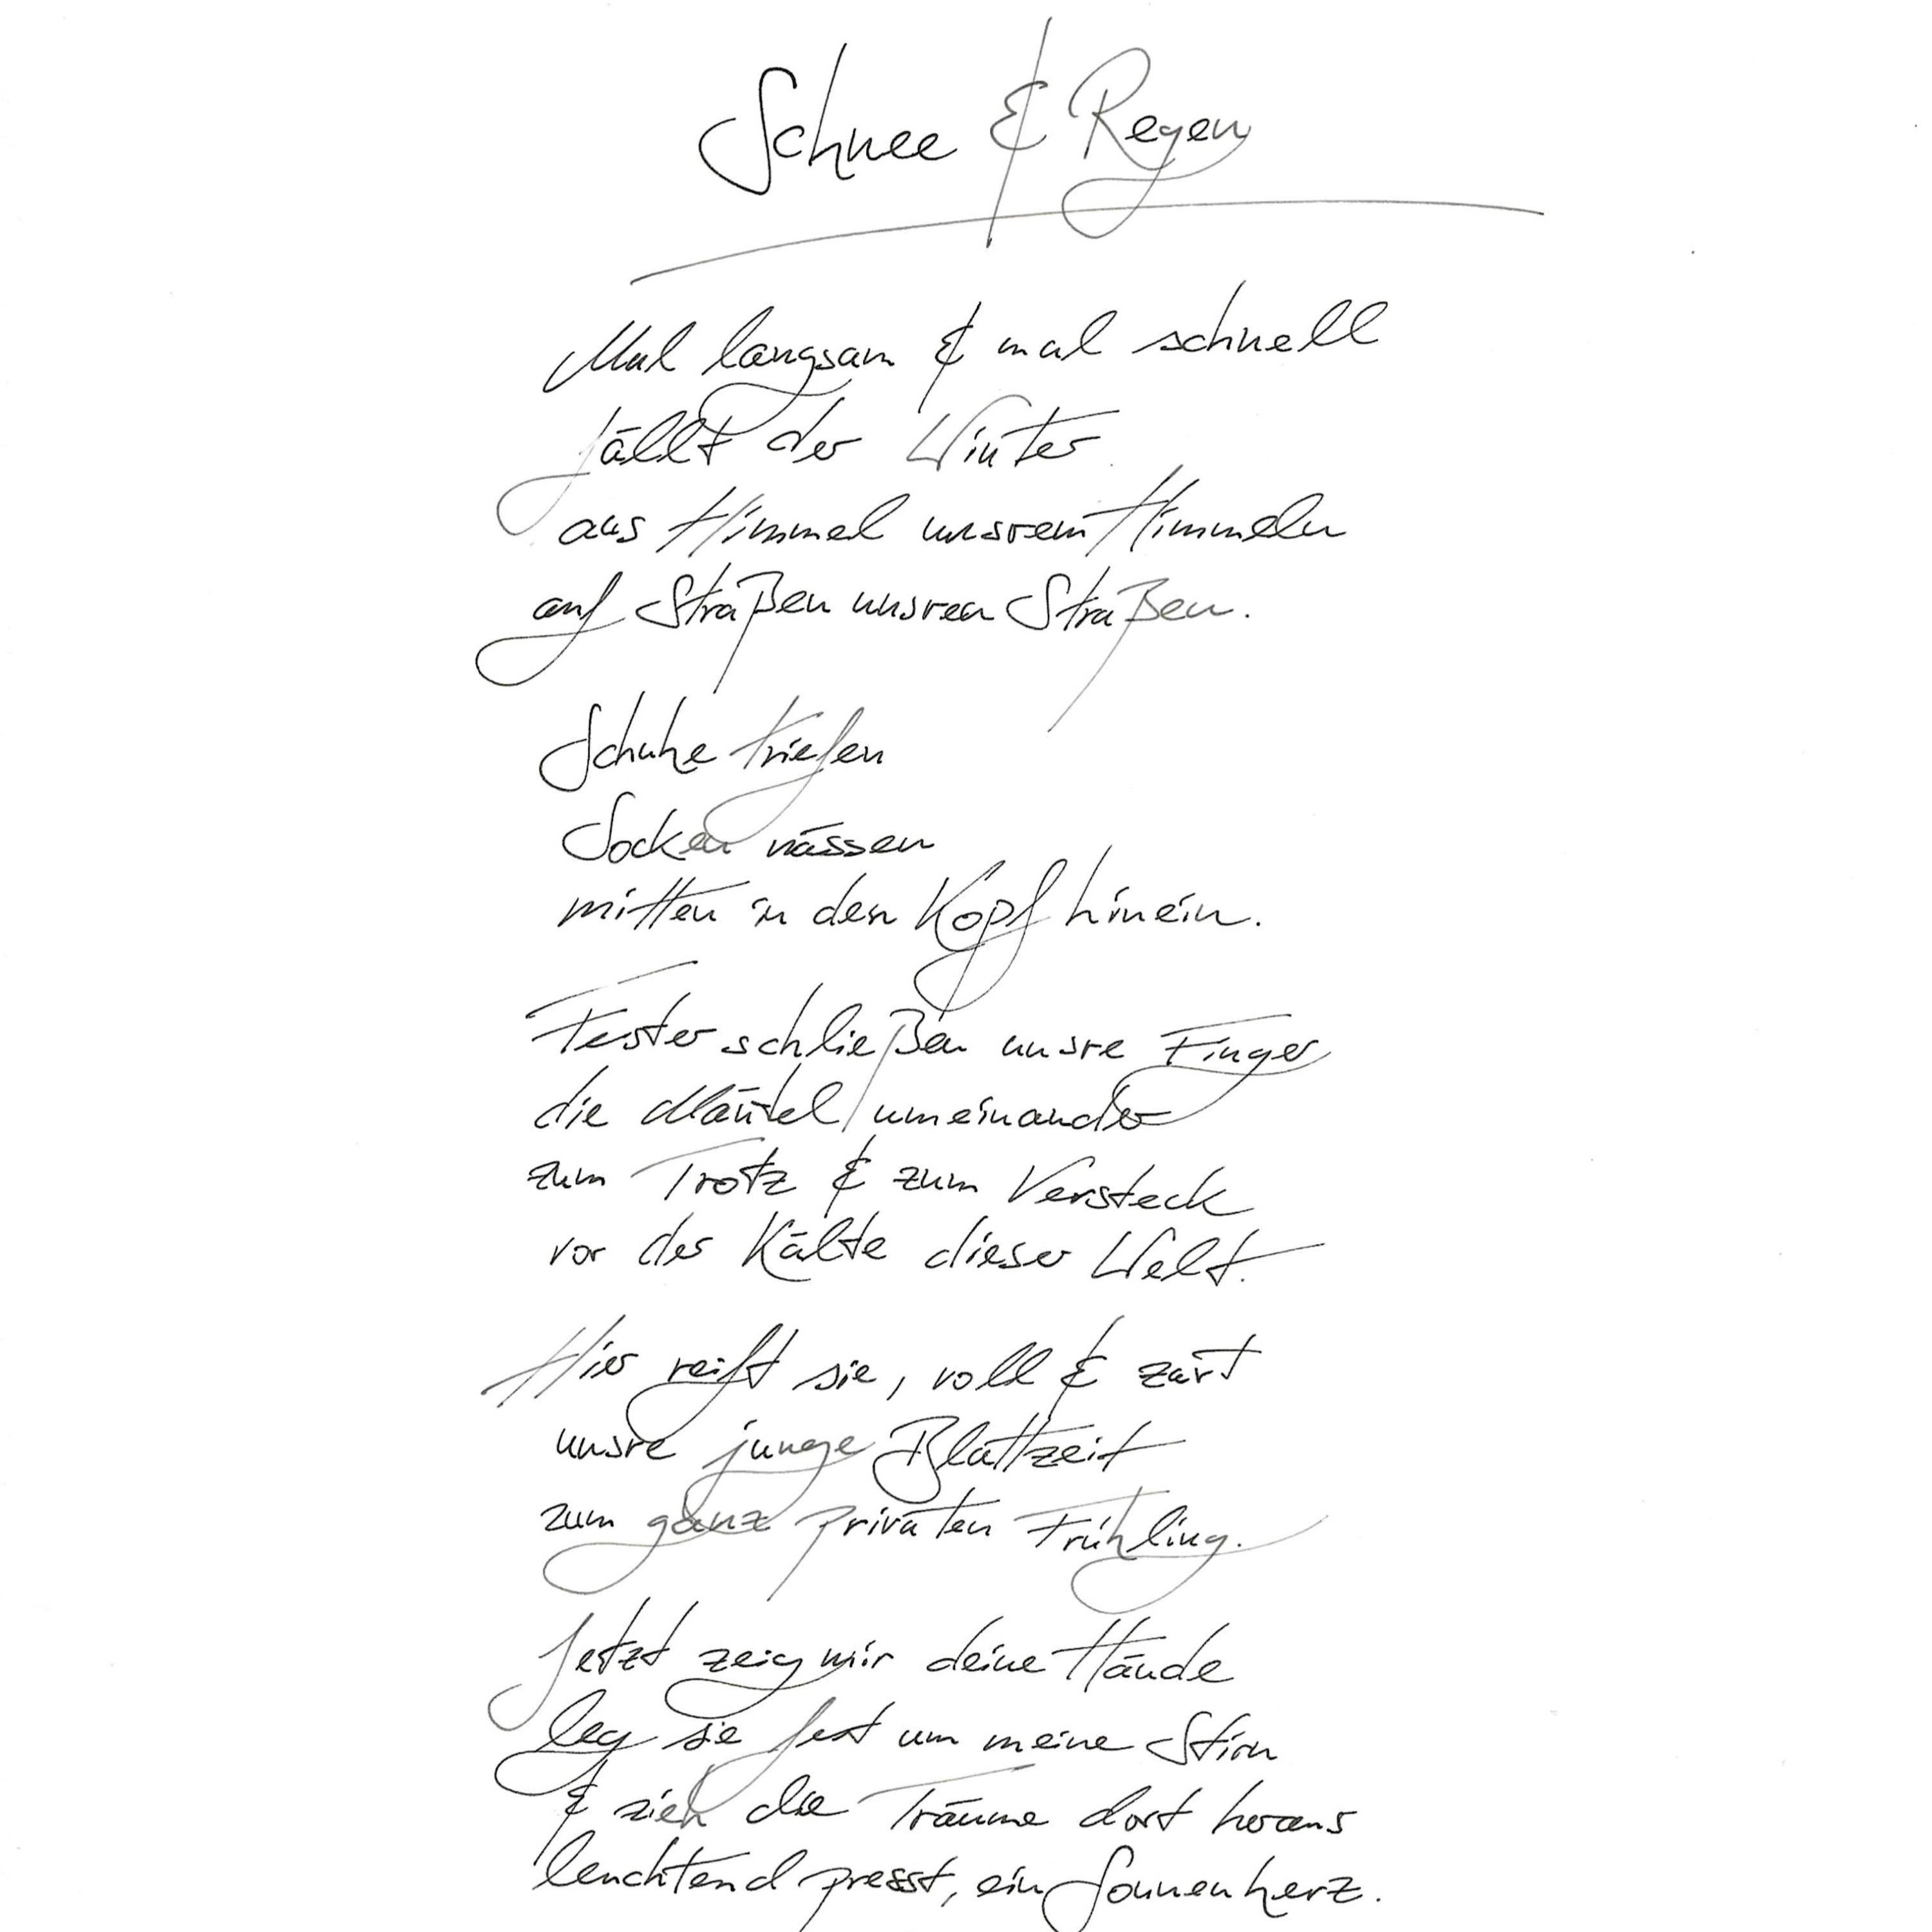 Schnee & Regen
Mal langsam & mal schnell
fällt der Winter
aus Himmel unsrem Himmeln
auf Straßen unsren Straßen.
Schuhe triefen
Socken nässen
mitten in den Kopf hinein.
Fester schließen unsre Finger
die Mäntel umeinander
zum Trotz & zum Versteck
vor der Kälte dieser Welt.
Hier reift sie, voll & zart
unsre junge Blattzeit
zum ganz privaten Frühling.
Jetzt zeig mir deine Hände
leg sie fest um meine Stirn
& zieh die Träume dort heraus
leuchtend presst, ein Sonnenherz.